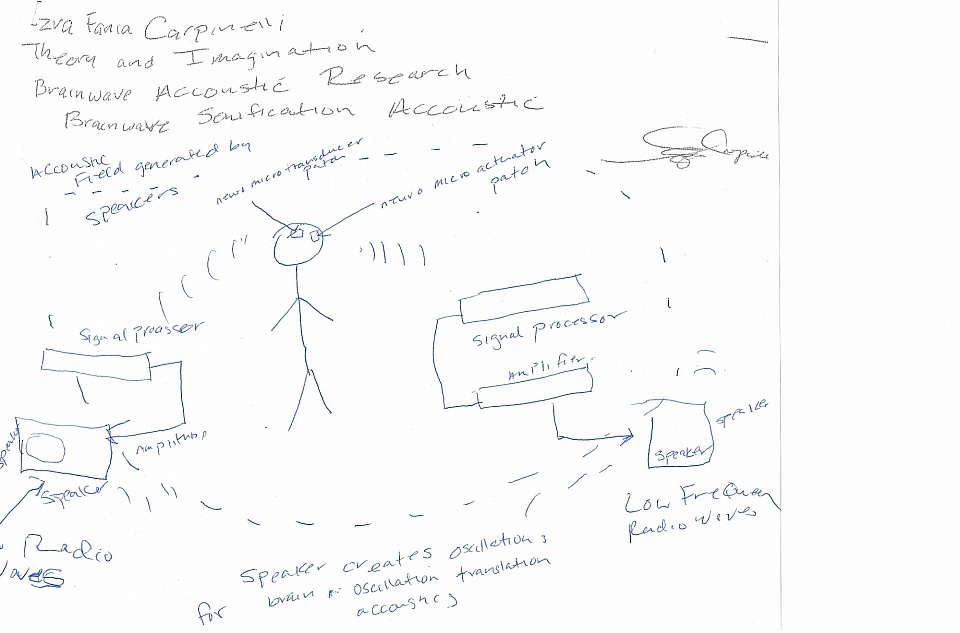 Ezra Fania Carpinelli
Theory and Imagination
Brainwave Accoustic Research
Brainwave Sonification Accoustic
Accoustic
Field generated by
Speakers
neuro micro transducer
patch
neuro micro actuator
patch
Signal processor
Signal processor
Amplifier
Speaker
Speaker
Speaker
Speaker
Low Frequen
Radio Waves
Radio
Speaker creates oscillations
for brain oscillation translation
accoustics